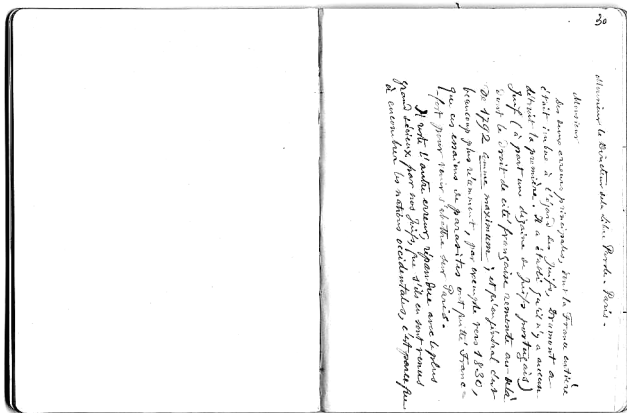 30
Monsieur le Directeur de la Libre Parole. Paris.
Monsieur
Des deux erreurs principales, dont la France entière
était imbue à l'égard des Juifs, Drumont a
détruit la première. Il a établi qu'il n'y a aucun
Juif (à part une dizaine de Juifs portugais)
dont le droit de cité française remonte au-delà
de 1792 comme maximum ; et qu'en général c'est
beaucoup plus récemment, par exemple vers 1830,
que ces essaims de parasites ont quitté Franc=
=fort pour venir s'abattre sur Paris.
Il reste l'autre erreur, répandue avec le plus
grand sérieux par nos Juifs, que s'ils en sont venus
à encombrer les nations occidentales, c'est parce que